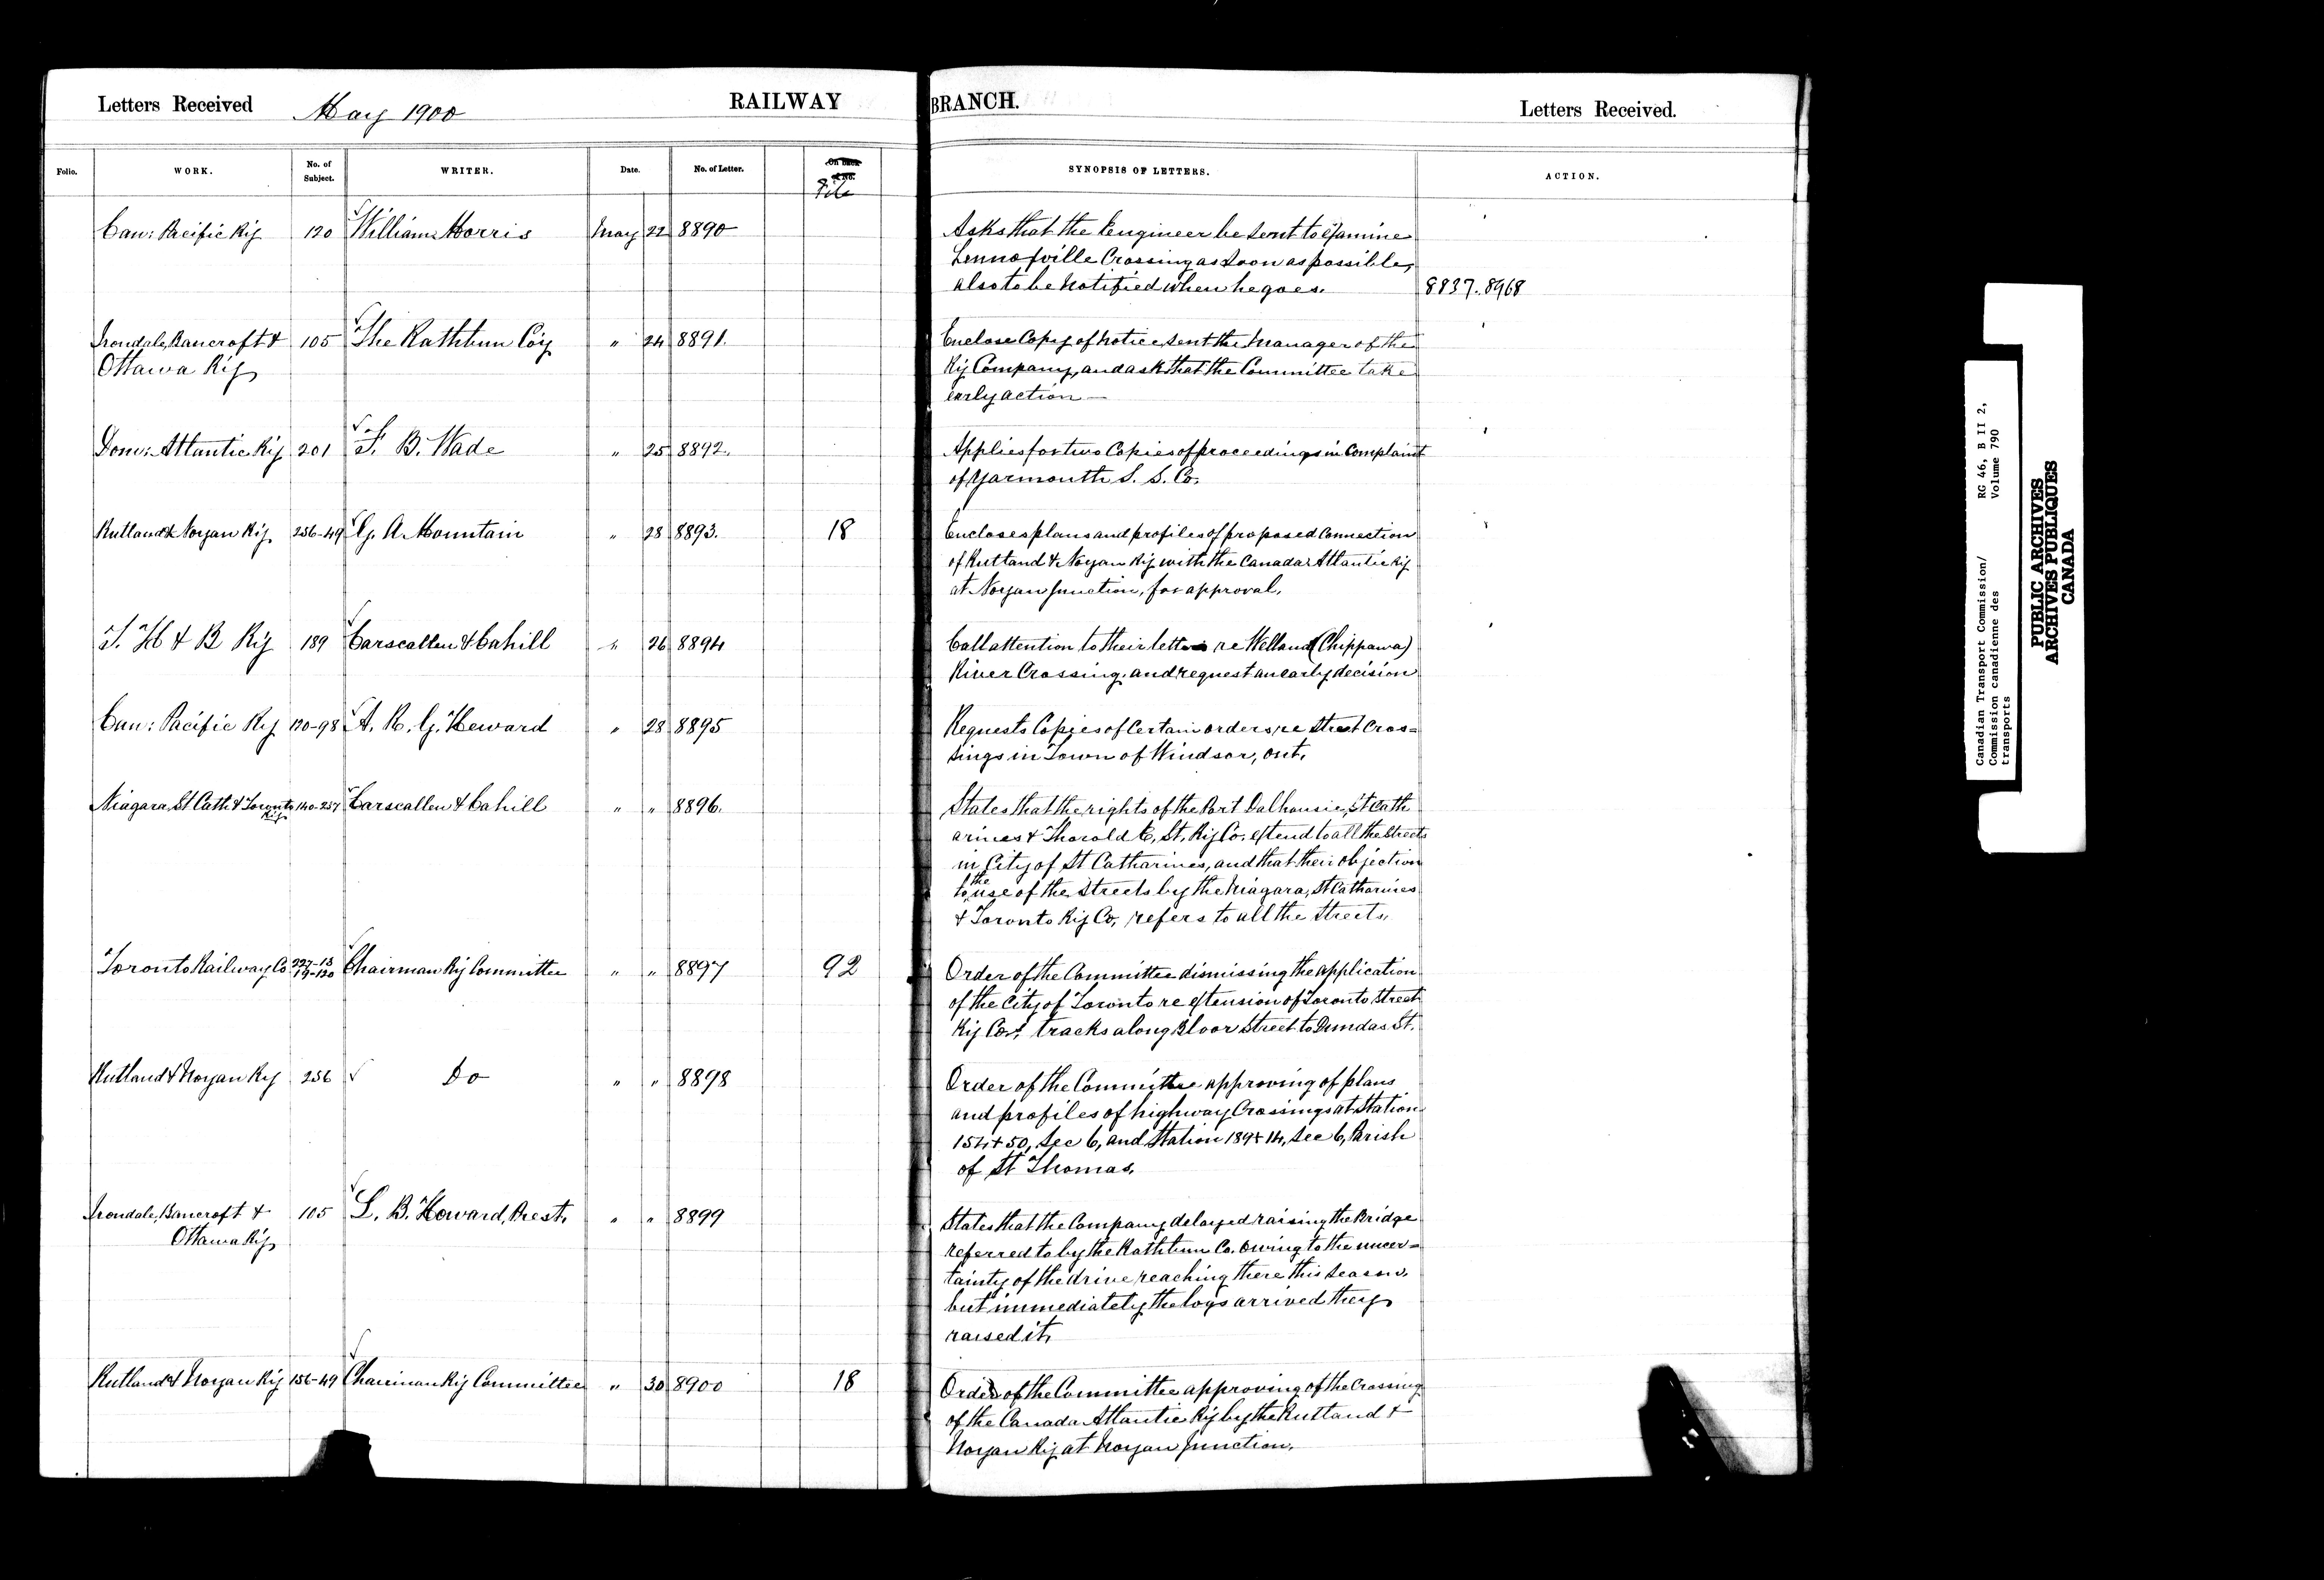 Letters Received May 1900 RAILWAY BRANCH. Letters Received.
Folio. WORK. No. of Subject. WRITER. Date. No. of Letter. File SYNOPSIS OF LETTERS. ACTION.
Can: Pacific Ry 120 William Morris May 22 8890 Asks that the Engineer be sent to examine
Lennoxville Crossing as soon as possible,
also to be notified when he goes. 8837. 8968
Irondale, Bancroft & 105 The Rathbun Coy " 24 8891. Enclose Copy of notice sent the Manager of the
Ottawa Ry Ry Company, and ask that the Committee take
early action —
Dom: Atlantic Ry 201 F. B. Wade " 25 8892. Applies for two Copies of proceedings in Complaint
of Yarmouth S. S. Co.
Rutland & Noyan Ry. 256-49 G. A. Mountain " 28 8893. 18 Encloses plans and profiles of proposed connection
of Rutland & Noyan Ry with the Canada Atlantic Ry
at Noyan Junction, for approval.
T. H & B Ry 189 Carscallen & Cahill " 26 8894 Call attention to their letter re Welland (Chippawa)
River Crossing, and request an early decision
Can: Pacific Ry 120-98 A. R. G. Heward " 28 8895 Requests Copies of Certain orders re Street Cros=
sings in Town of Windsor, Ont.
Niagara, St Cath & Toronto Ry 140-257 Carscallen & Cahill " " 8896. States that the rights of the Port Dalhousie, St Cath
arines & Thorold E. St. Ry Co. extend to all the Streets
in City of St Catharines, and that their objection
to the use of the streets by the Niagara, St Catharines
& Toronto Ry Co. refers to all the Streets.
Toronto Railway Co 227-13 19-120 Chairman Ry Committee " " 8897 92 Order of the Committee dismissing the application
of the City of Toronto re extension of Toronto Street
Ry Co's tracks along Bloor Street to Dundas St.
Rutland & Noyan Ry 256 Do " " 8898 Order of the Committee approving of plans
and profiles of highway Crossings at Station
154+50, Sec 6, and Station 189+14, Sec 6, Parish
of St Thomas.
Irondale, Bancroft & 105 L. B. Howard, Prest. " " 8899 States that the Company delayed raising the Bridge
Ottawa Ry referred to by the Rathbun Co. owing to the uncer=
tainty of the drive reaching there this season,
but immediately the logs arrived they
raised it.
Rutland & Noyan Ry 156-49 Chairman Ry Committee " 30 8900 18 Order of the Committee approving of the Crossing
of the Canada Atlantic Ry by the Rutland &
Noyan Ry at Noyan Junction.
Canadian Transport Commission/ RG 46, B II 2,
Commission canadienne des Volume 790
transports
PUBLIC ARCHIVES
ARCHIVES PUBLIQUES
CANADA